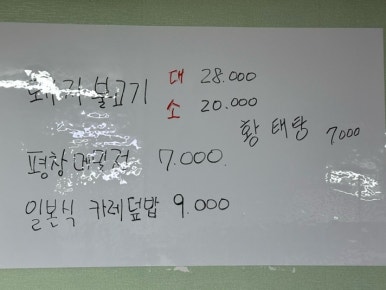 불고기 대 28.000
소 20.000
황태탕 7000
평창 메밀전 7.000.
일본식 카레덮밥 9.000